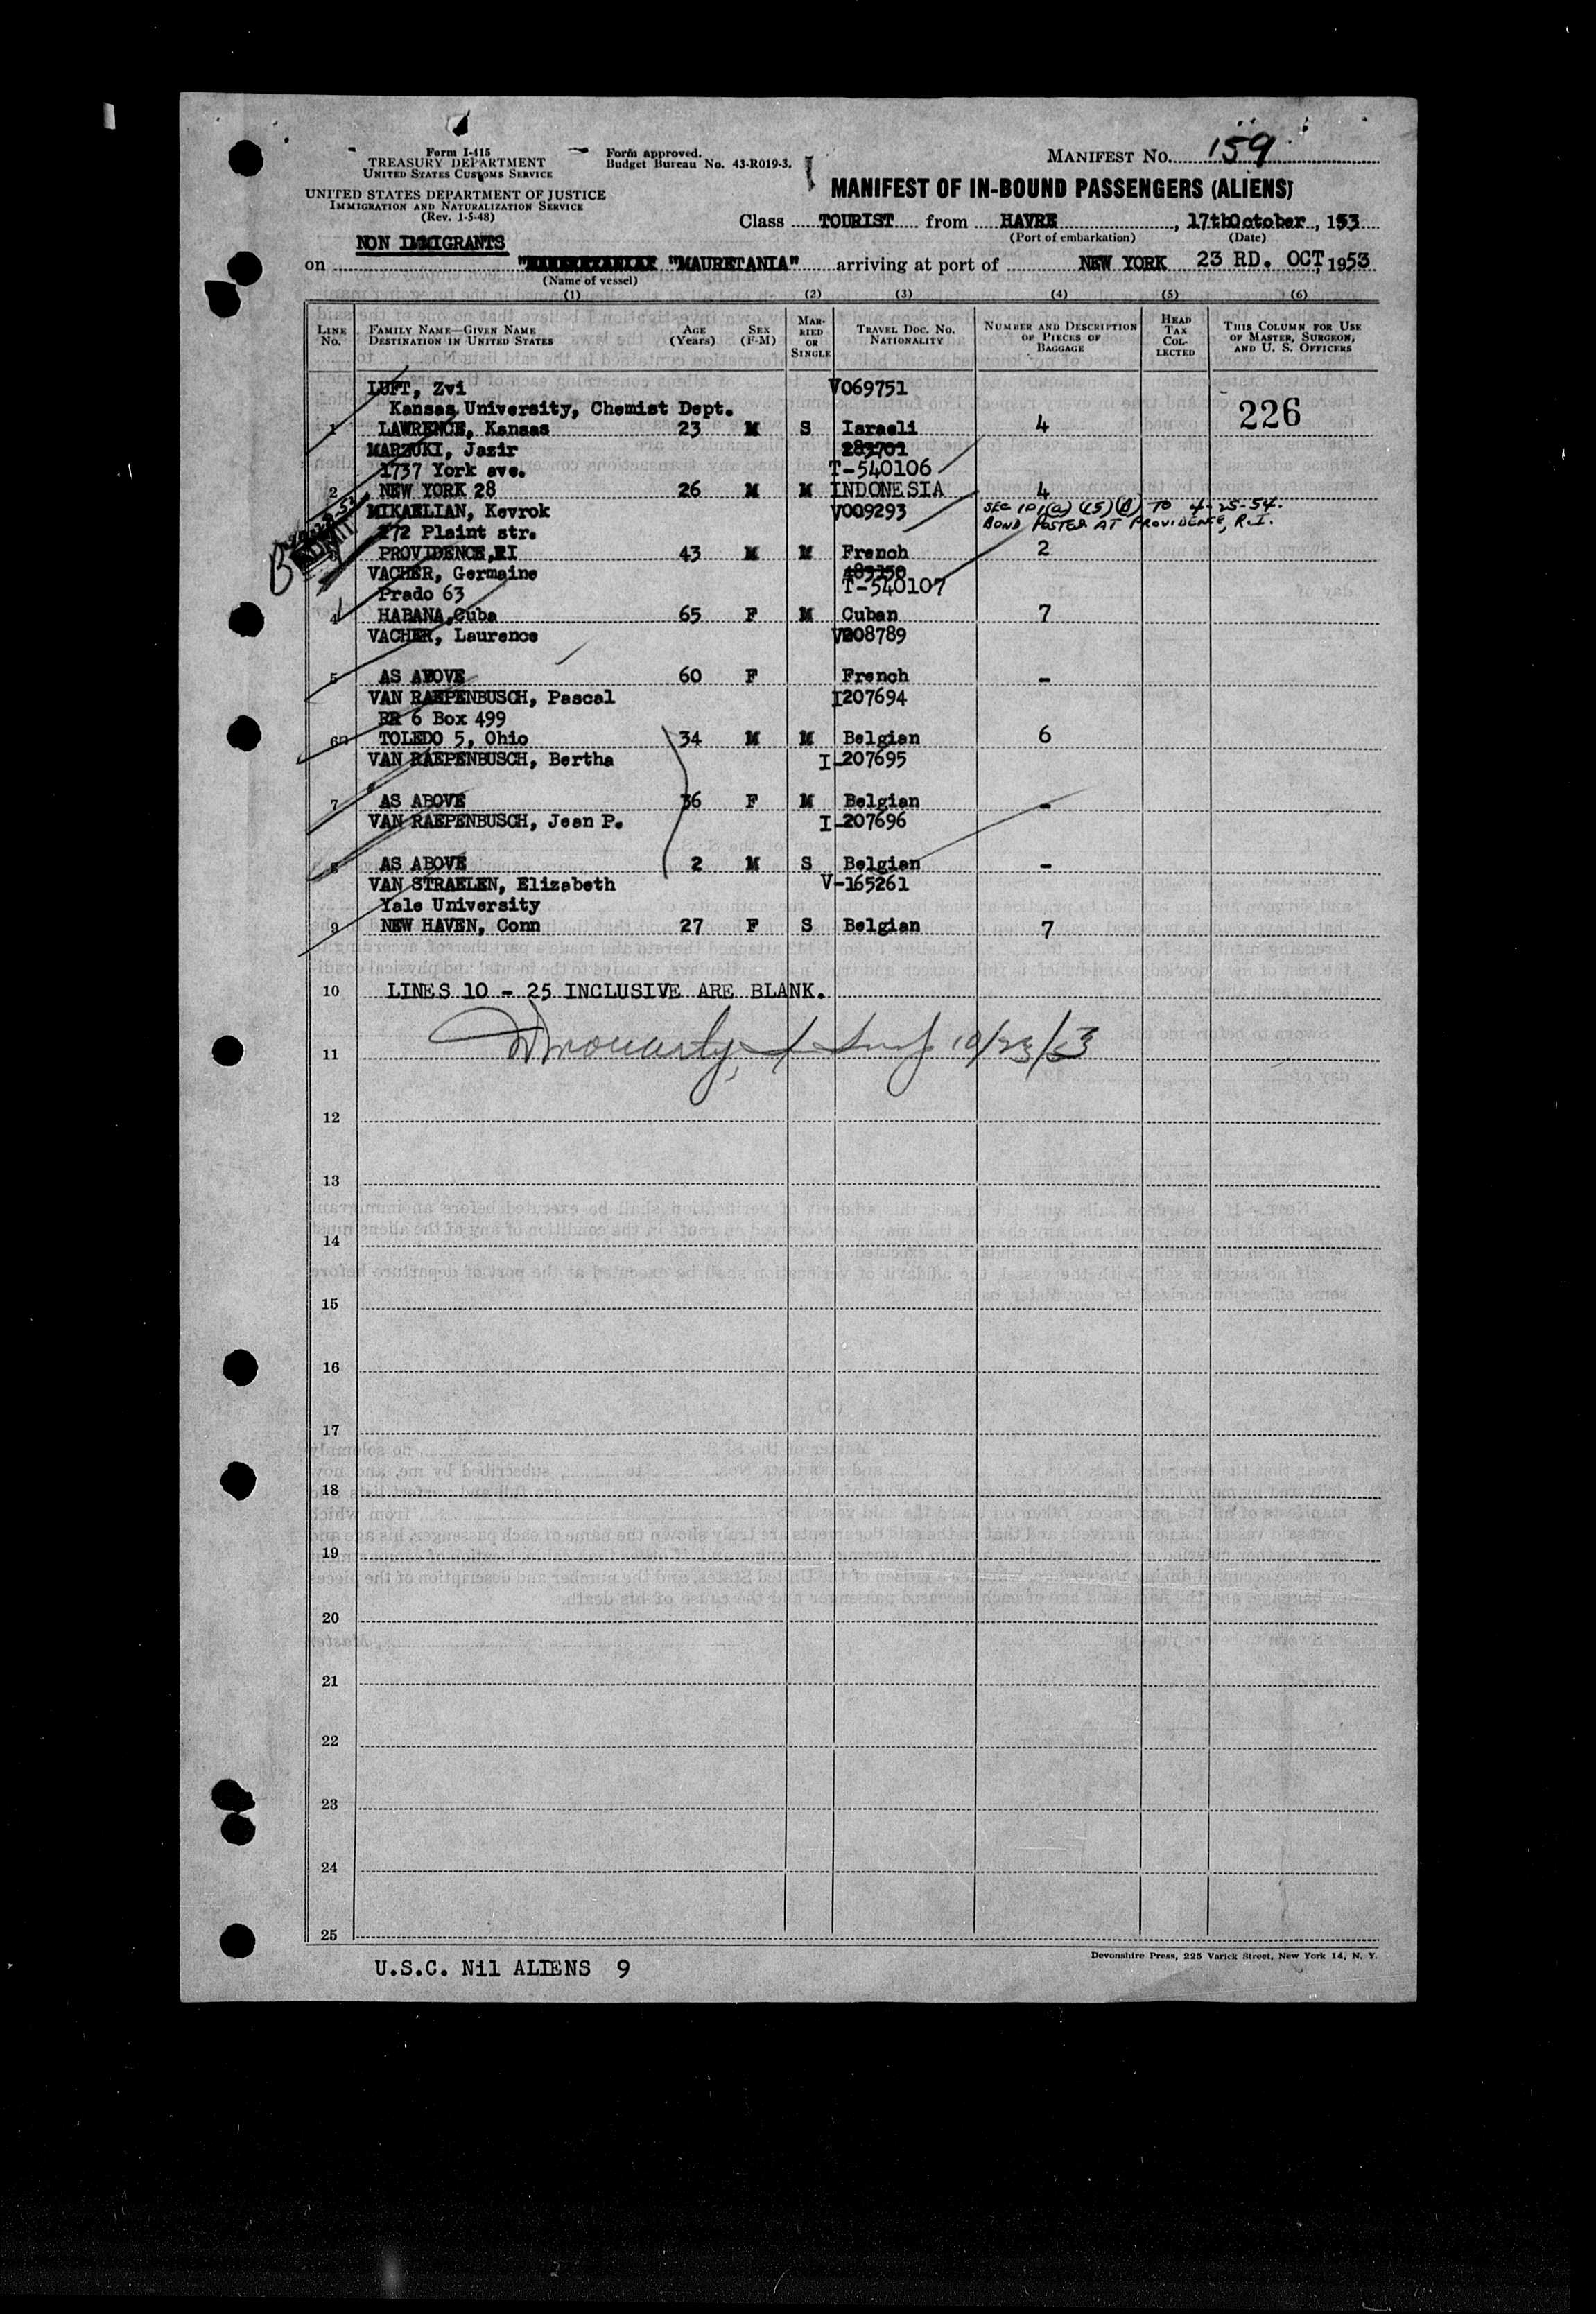 MANIFEST NO. 159
Form I-415
TREASURY DEPARTMENT
UNITED STATES CUSTOMS SERVICE
UNITED STATES DEPARTMENT OF JUSTICE
IMMIGRATION AND NATURALIZATION SERVICE
(Rev. 1-5-48)
Form approved.
Budget Bureau No. 43-R019-3.
MANIFEST OF IN-BOUND PASSENGERS (ALIENS)
Class TOURIST from HAVRE, 17thOctober, 1953
(Port of embarkation) (Date)
NON IMMIGRANTS
on "MAURETANIA" arriving at port of NEW YORK 23 RD. OCT, 1953
(Name of vessel)
(1) (2) (3) (4) (5) (6)
LINE NO. FAMILY NAME—GIVEN NAME DESTINATION IN UNITED STATES AGE (Years) SEX (F-M) MARRIED OR SINGLE TRAVEL DOC. NO. NATIONALITY NUMBER AND DESCRIPTION OF PIECES OF BAGGAGE HEAD TAX COLLECTED THIS COLUMN FOR USE OF MASTER, SURGEON, AND U. S. OFFICERS
LUFT, Zvi V069751
Kansas University, Chemist Dept. 226
1 LAWRENCE, Kansas 23 M S Israeli 4
MARZUKI, Jazir 283701
1737 York ave. T-540106
2 NEW YORK 28 26 M M INDONESIA 4
MIKAELIAN, Kevrok V009293 SEC 101(a)(15)(B) TO 4-25-54.
272 Plaint str. BOND POSTED AT PROVIDENCE, R.I.
ADMIT
3 PROVIDENCE,RI 43 M M French 2
VACHER, Germaine
Prado 63 T-540107
4 HABANA,Cuba 65 F M Cuban 7
VACHER, Laurence V208789
5 AS ABOVE 60 F French -
VAN RAEPENBUSCH, Pascal I207694
RR 6 Box 499
6 TOLEDO 5, Ohio 34 M M Belgian 6
VAN RAEPENBUSCH, Bertha I-207695
7 AS ABOVE 36 F M Belgian -
VAN RAEPENBUSCH, Jean P. I-207696
8 AS ABOVE 2 M S Belgian -
VAN STRAELEN, Elizabeth V-165261
Yale University
9 NEW HAVEN, Conn 27 F S Belgian 7
10 LINES 10 - 25 INCLUSIVE ARE BLANK.
11 10/23/53
12
13
14
15
16
17
18
19
20
21
22
23
24
25
Devonshire Press, 225 Varick Street, New York 14, N. Y.
U.S.C. Nil ALIENS 9